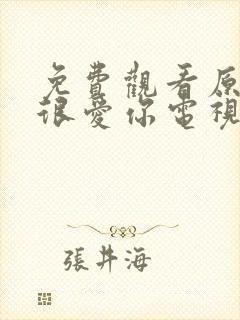 免費觀看原
很愛你電視
張井海